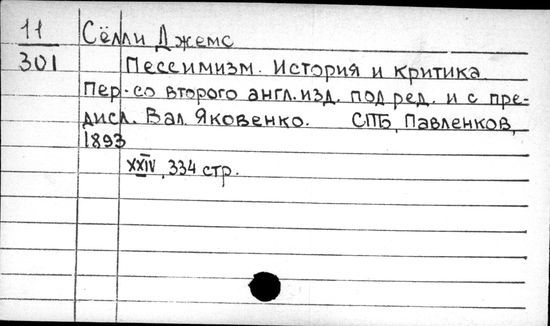 11
301
Сёлли Джемс
Пессимизм. История и критика
Пер. со второго англ. изд. под ред. и с пре-
дисл. Вал. Яковенко. СПБ, Павленков,
1893
XXIV, 334 стр.